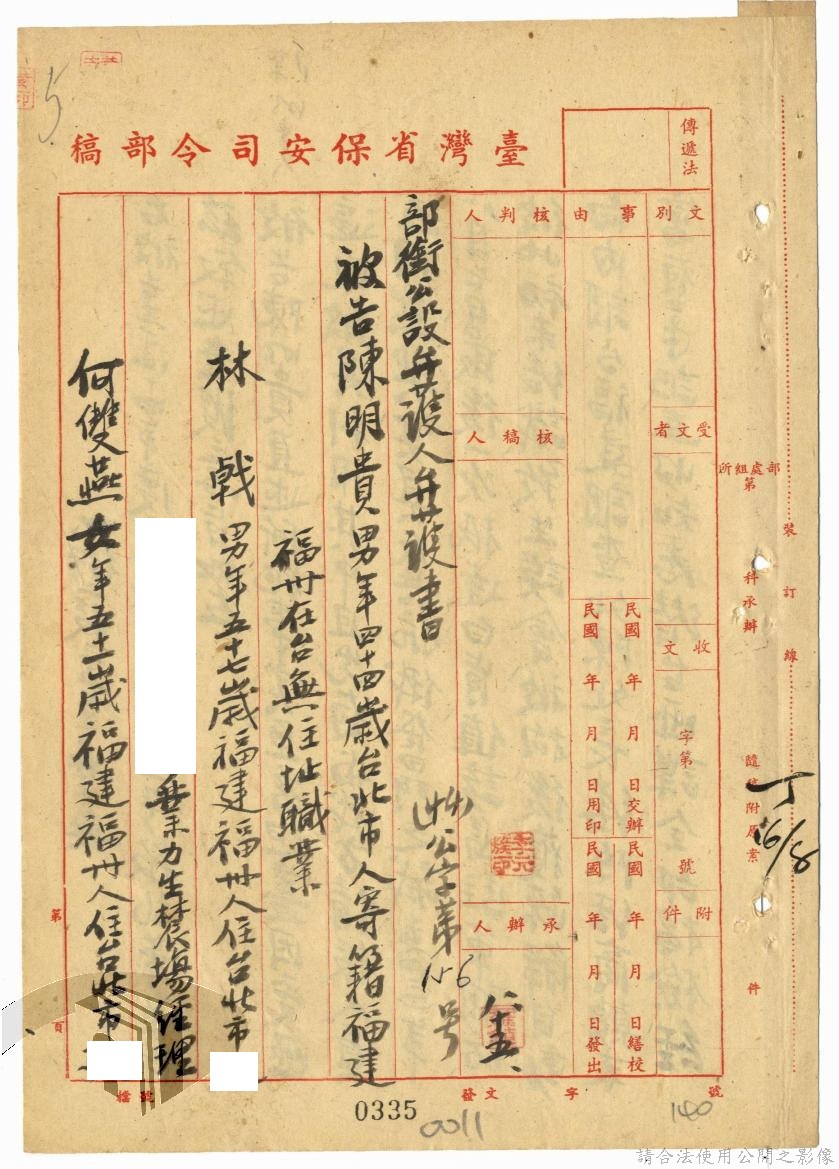 臺灣省保安司令部稿
傳遞法
文別
受文者
收文
字第
號
附件
事由
民國 年 月 日交辦
民國 年 月 日繕校
民國 年 月 日用印
民國 年 月 日發出
核判人
核稿人
承辦人
八十五、
部處組所
第
科承辦
隨稿附原案
件
裝訂線
16/8
5
部銜公設弁護人弁護書
公字第156号
被告陳明貴男年四十四歲台北市人寄籍福建
福州在台無住址職業
林戟男年五十七歲福建福州人住台北市
業力生農場經理
何雙燕女年五十一歲福建福州人住台北市
第
頁
檔號
發文 字
號
0335
0011
140
請合法使用公開之影像